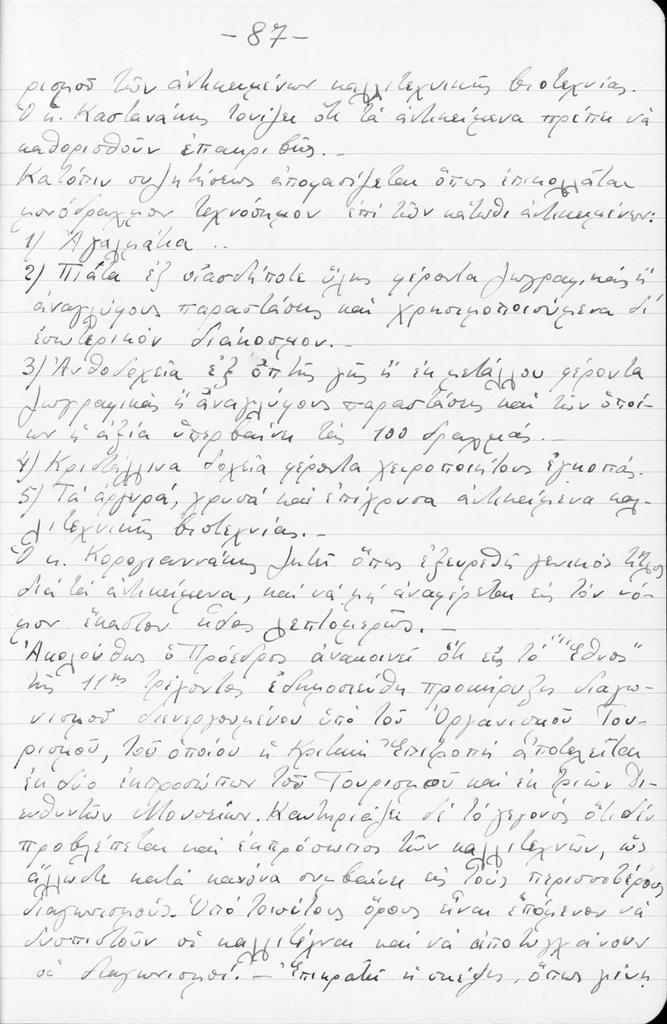 -87-
ρισμοῦ τῶν ἀντικειμένων καλλιτεχνικῆς βιοτεχνίας.
Ὁ κ. Καστανάκης τονίζει ὅτι τὰ ἀντικείμενα πρέπει νὰ
καθορισθοῦν ἐπακριβῶς.-
Κατόπιν συζητήσεως ἀποφασίζεται ὅπως ἐπικολλᾶται
μονόδραχμον τεχνόσημον ἐπὶ τῶν κάτωθι ἀντικειμένων:
1) Ἀγάλματα ..
2) Πιάτα ἐξ οἱασδήποτε ὕλης φέροντα ζωγραφικάς ἤ
ἀναγλύφους παραστάσεις καὶ χρησιμοποιούμενα δι'
ἐσωτερικόν διάκοσμον.-
3) Ἀνθοδοχεῖα ἐξ ὀπτῆς γῆς ἤ ἐκ μετάλλου φέροντα
ζωγραφικάς ἤ ἀναγλύφους παραστάσεις καὶ τῶν ὁποί-
ων ἡ ἀξία ὑπερβαίνει τὰς 100 δραχμάς.-
4) Κρυστάλλινα δοχεῖα φέροντα χειροποιήτους ἐγκοπάς.
5) Τὰ ἀργυρᾶ, χρυσᾶ καὶ ἐπίχρυσα ἀντικείμενα καλ-
λιτεχνικῆς βιοτεχνίας.-
Ὁ κ. Κορογιαννάκης ζητεῖ ὅπως ἐξευρεθῇ γενικός τίτλος
διὰ τὰ ἀντικείμενα, καὶ νὰ μὴ ἀναφέρεται εἰς τὸν νό-
μον ἕκαστον εἶδος λεπτομερῶς.-
Ἀκολούθως ὁ Πρόεδρος ἀνακοινεῖ ὅτι εἰς τὸ "Ἔθνος"
τῆς 11ης τρέχοντος ἐδημοσιεύθη προκήρυξις διαγω-
νισμοῦ διενεργουμένου ὑπὸ τοῦ Ὀργανισμοῦ Του-
ρισμοῦ, τοῦ ὁποίου ἡ Κριτική Ἐπιτροπή ἀποτελεῖται
ἐκ δύο ἐκπροσώπων τοῦ Τουρισμοῦ καὶ ἐκ τριῶν Δι-
ευθυντῶν Μουσείων. Καυτηριάζει δὲ τὸ γεγονός ὅτι δέν
προβλέπεται καὶ ἐκπρόσωπος τῶν καλλιτεχνῶν, ὡς
ἄλλωστε κατὰ κανόνα συμβαίνει εἰς τοὺς περισσοτέρους
διαγωνισμούς. Ὑπὸ τοιούτους ὅρους εἶναι ἑπόμενον νὰ
δυσπιστοῦν οἱ καλλιτέχναι καὶ νὰ ἀποτυγχάνουν
οἱ διαγωνισμοί.- Ἐπικρατεῖ ἡ σκέψις, ὅπως γίνῃ